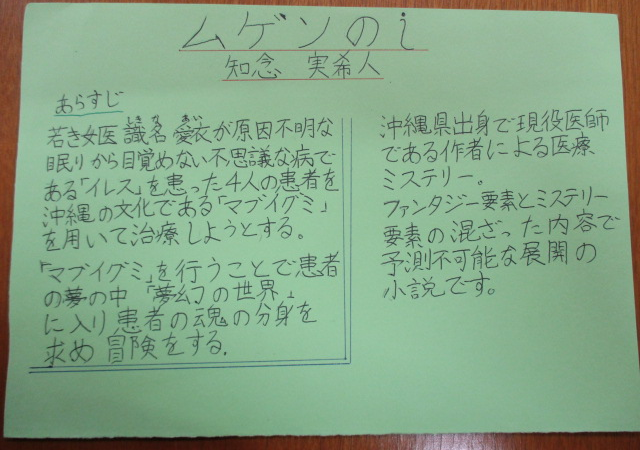 ムゲンのi
知念 実希人
あらすじ
しきな あい
若き女医 識名 愛衣が原因不明な
眠りから目覚めない不思議な病で
ある「イレス」を患った4人の患者を
沖縄の文化である「マブイグミ」
を用いて治療しようとする。
「マブイグミ」を行うことで患者
の夢の中「夢幻の世界」
に入り患者の魂の分身を
求め冒険をする.
沖縄県出身で現役医師
である作者による医療
ミステリー。
ファンタジー要素とミステリー
要素の混ざった内容で
予測不可能な展開の
小説です。